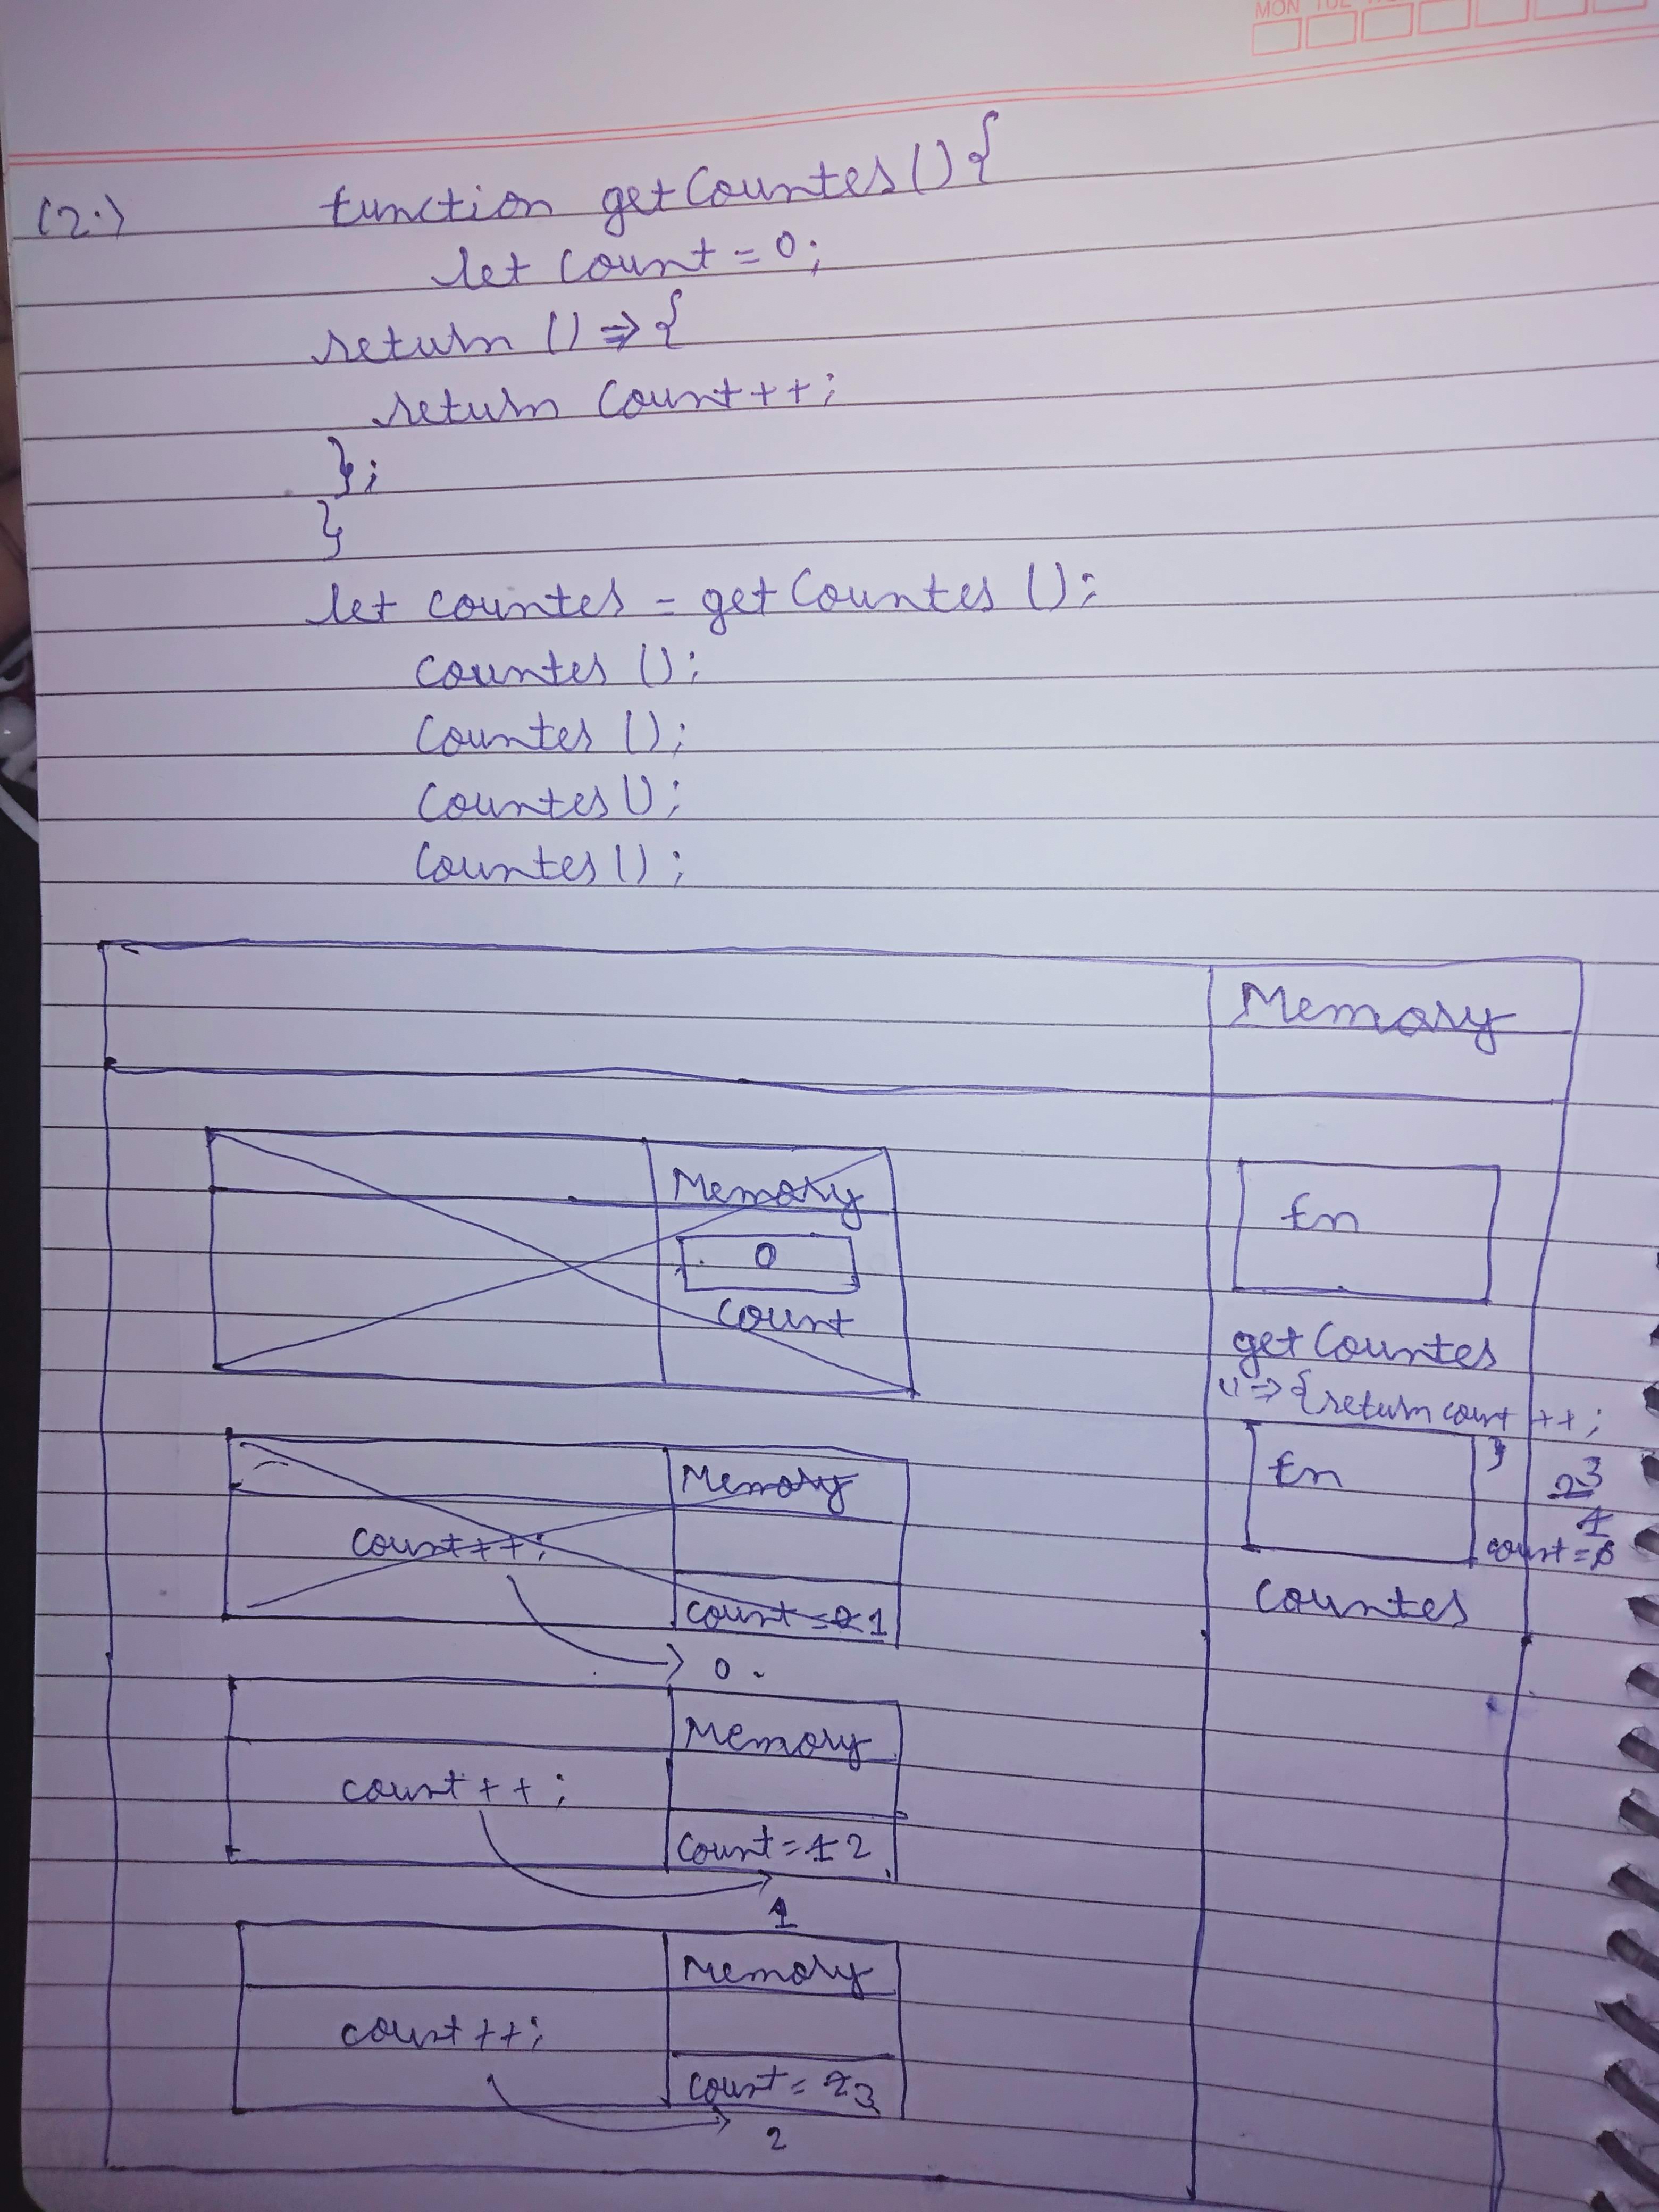 MON TUE
(2.) function getCounter() {
let count = 0;
return () => {
return count++;
};
}
let counter = getCounter();
counter();
counter();
counter();
counter();
Memory
Memory
0
count
fn
getCounter
() => {return count ++;
}
fn
2 3
1
count = 0
counter
Memory
count++;
count = 0 1
0.
Memory
count++;
count = 1 2
1
Memory
count++;
count = 2 3
2